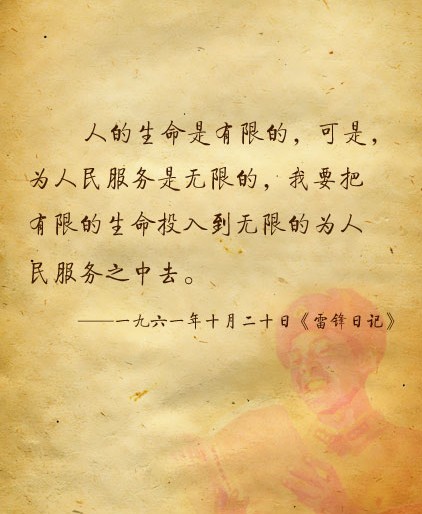 人的生命是有限的，可是，
为人民服务是无限的，我要把
有限的生命投入到无限的为人
民服务之中去。
——一九六一年十月二十日《雷锋日记》